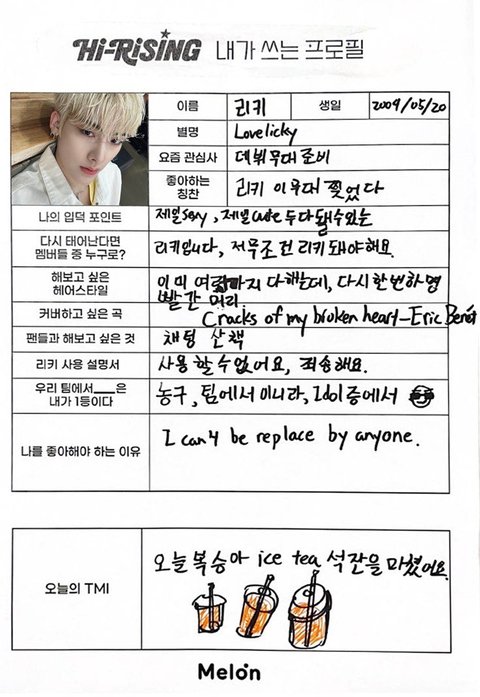 Hi-RiSiNG 내가 쓰는 프로필
이름 리키 생일 2004/05/20
별명 Lovelicky
요즘 관심사 데뷔무대 준비
좋아하는 칭찬 리키 이 무대 찢었다
나의 입덕 포인트 제일 sexy, 제일 cute 두 다 될 수 있는
다시 태어난다면 멤버들 중 누구로? 리키입니다, 저 무조건 리키 돼야해요.
해보고 싶은 헤어스타일 이미 여러까지 다 해봤는데, 다시 한번 하명
빨간 머리
커버하고 싶은 곡 Cracks of my broken heart-Eric Benét
팬들과 해보고 싶은 것 채팅 산책
리키 사용 설명서 사용할 수 없어요, 죄송해요.
우리 팀에서___은 내가 1등이다 농구, 팀에서 아니라, Idol 중에서
나를 좋아해야 하는 이유 I can't be replace by anyone.
오늘의 TMI 오늘 복숭아 ice tea 석잔을 마셨어요.
Melon